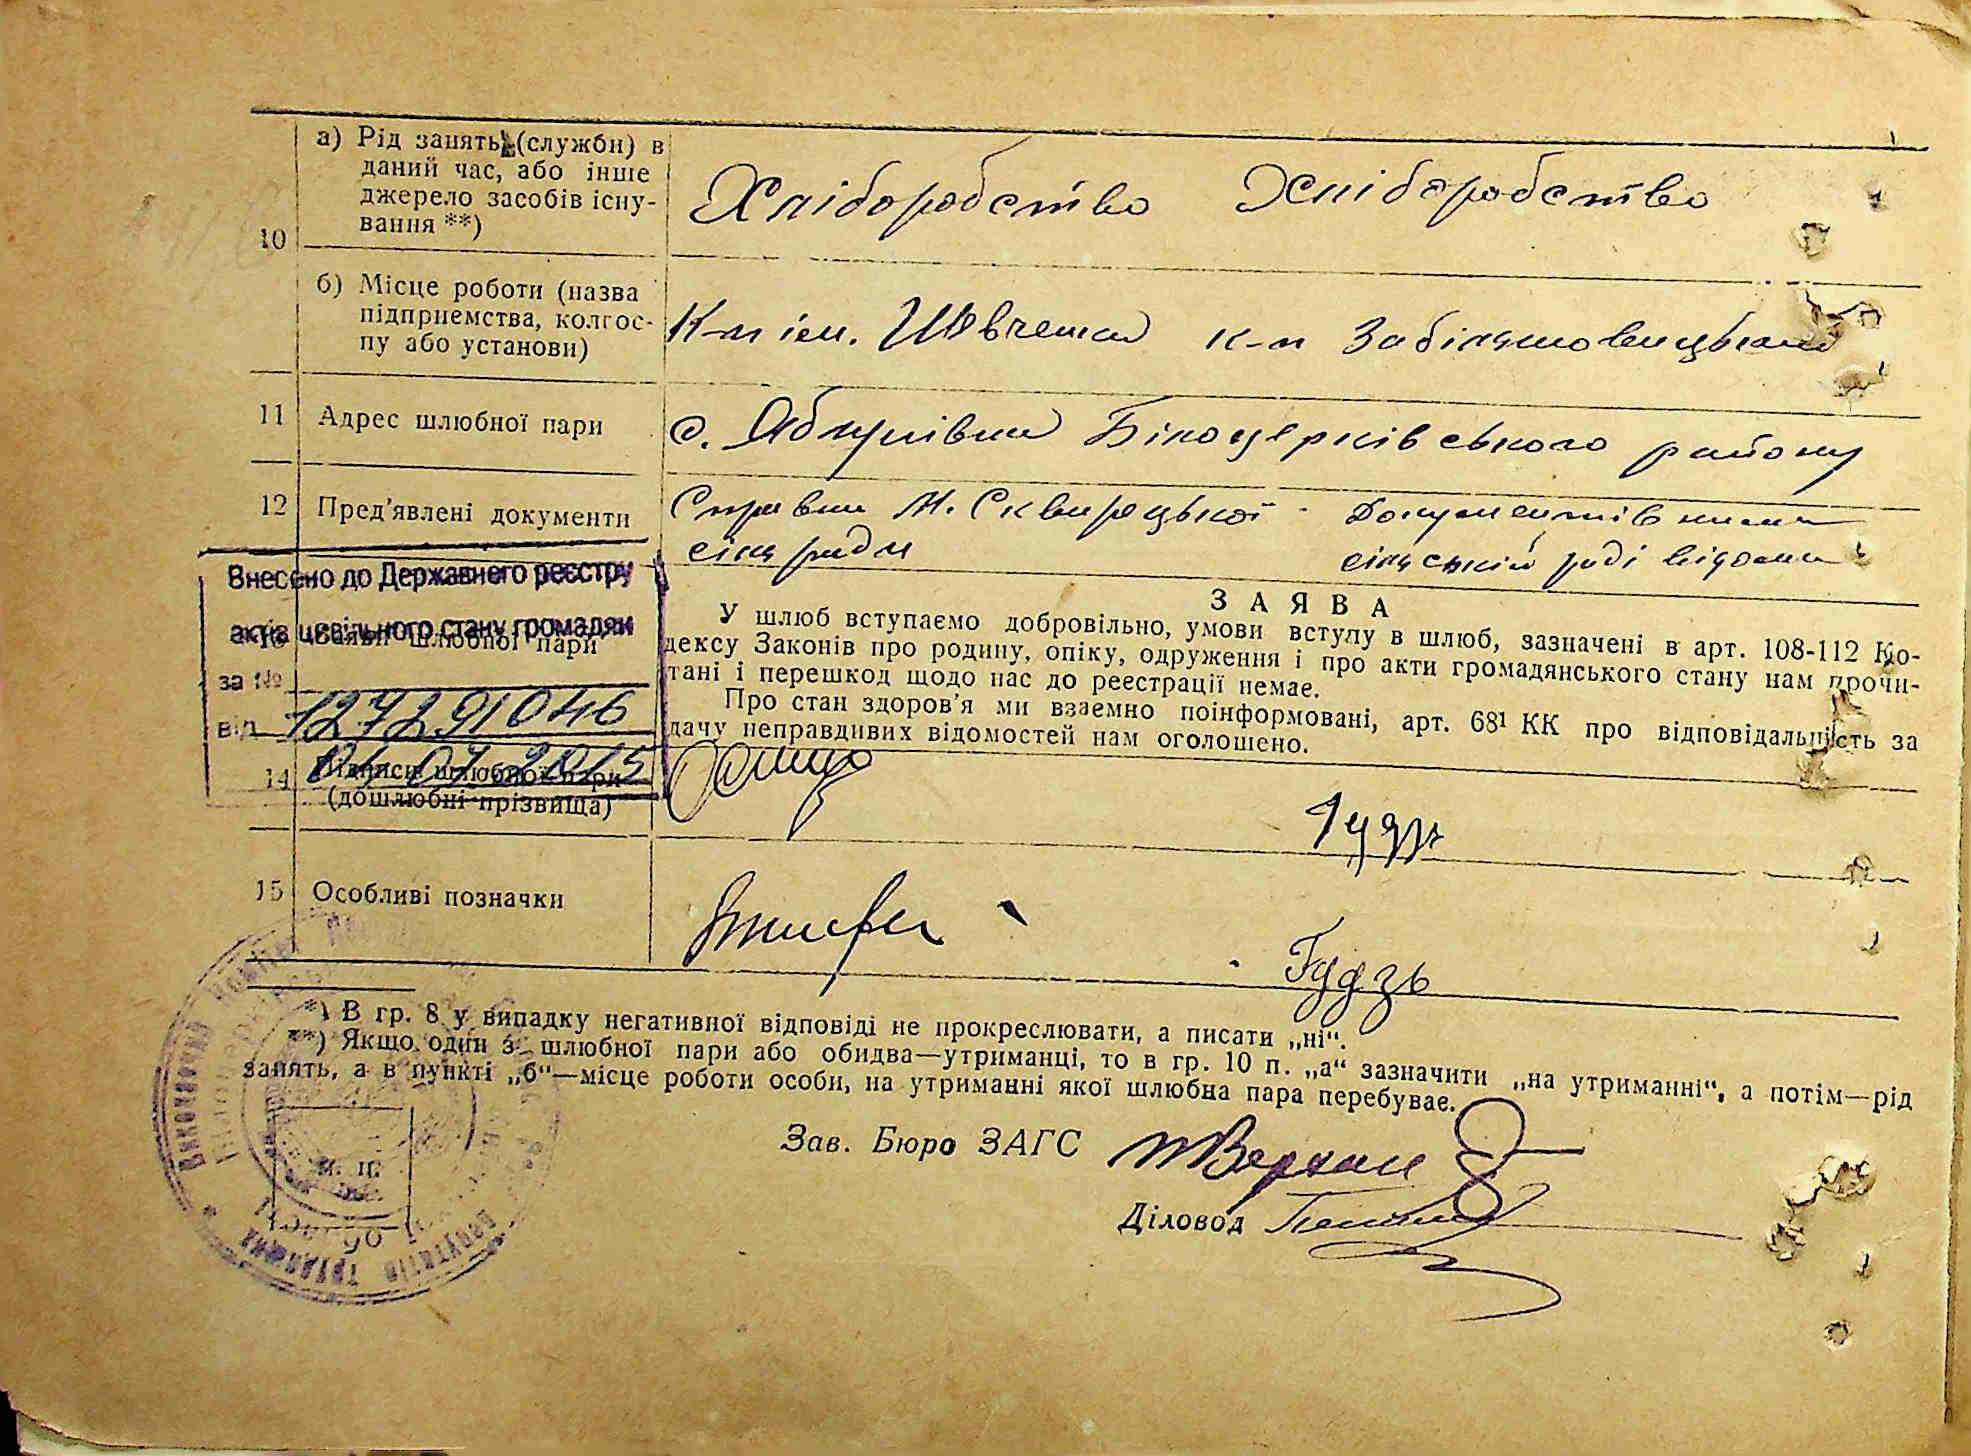 10
а) Рід занять (службн) в
даний час, або інше
джерело засобів існу-
вання **)
Хліборобство Хліборобство
б) Місце роботи (назва
підприємства, колгос-
пу або установи)
К-п ім. Шевченка к-п
11 Адрес шлюбної пари
с. Яблунівка Білоцерківського району
12 Пред'явлені документи
Справка М. Сквирецької
сіль ради
Документів нема
сільській раді відома
Внесено до Державного реєстру
актів цивільного стану громадян
за № 127291046
від 01 07 2015
13 Заяви шлюбної пари
ЗАЯВА
У шлюб вступаємо добровільно, умови вступу в шлюб, зазначені в арт. 108-112 Ко-
дексу Законів про родину, опіку, одруження і про акти громадянського стану нам прочи-
тані і перешкод щодо нас до реєстрації немає.
Про стан здоров'я ми взаємно поінформовані, арт. 68¹ КК про відповідальність за
дачу неправдивих відомостей нам оголошено.
14 Підписи шлюбної пари
(дошлюбні прізвища)
15 Особливі позначки
Гудзь
*) В гр. 8 у випадку негативної відповіді не прокреслювати, а писати „ні“.
**) Якщо один з шлюбної пари або обидва—утриманці, то в гр. 10 п. „а“ зазначити „на утриманні“, а потім—рід
занять, а в пункті „б“—місце роботи особи, на утриманні якої шлюбна пара перебуває.
Зав. Бюро ЗАГС
Діловод
м. п.
Виконавчий Комітет
депутатів трудящих
області